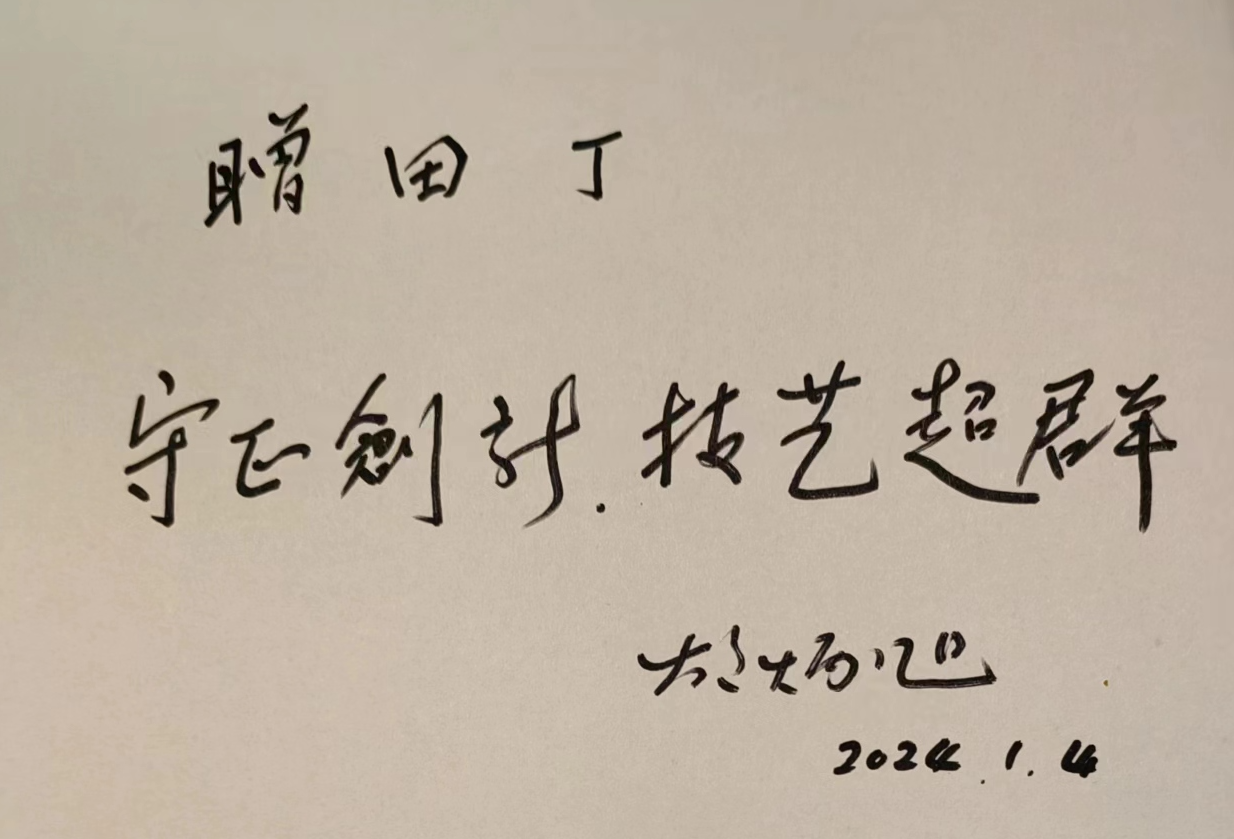 赠田丁
守正創新.技艺超群
2024.1.4